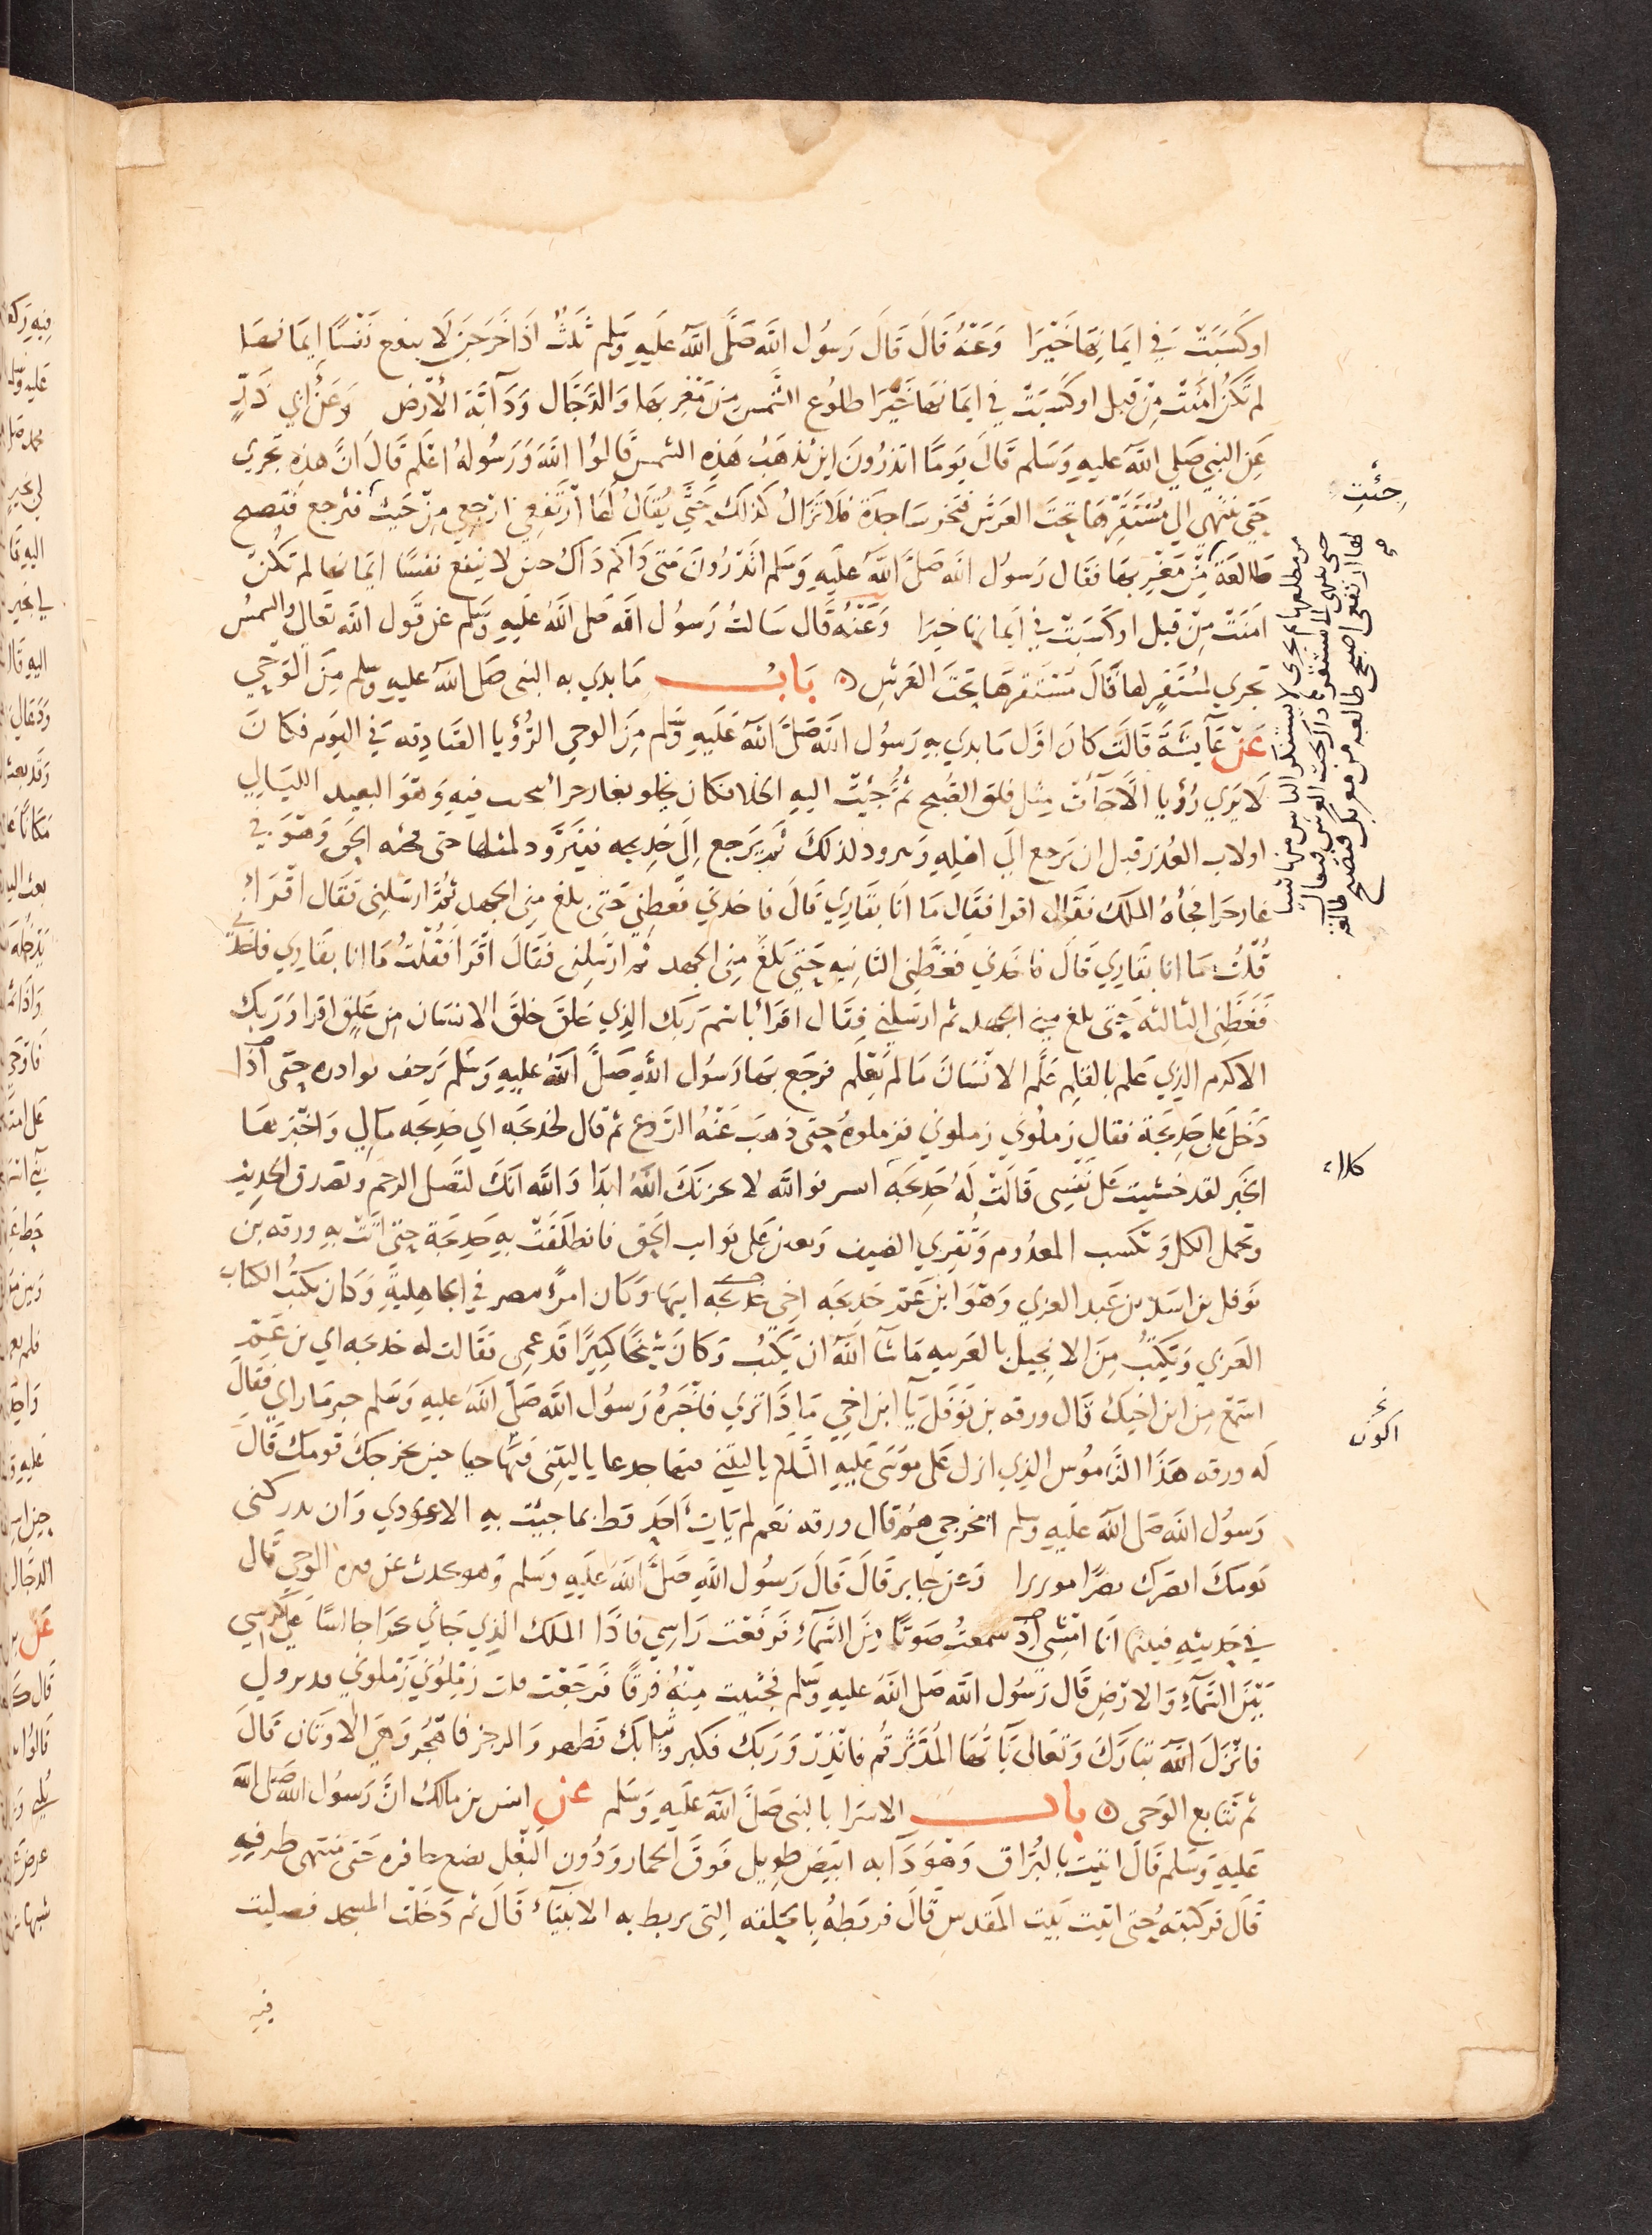 اوكسَبَتْ في ايمَانِهَا خَيْرَا وَعَنْهُ قَالَ قَالَ رَسُول الله صَلَّى الله عليهِ وَسَلم ثَلثٌ اذَا خَرَجنَ لَا ينفع نَفْسًا اِيمَانهَا
لم تَكنُ امَنَتْ مِنْ قبل اوكسَبَتْ في ايمَانهَا خَيْرَا طلوُع الشمس مِنْ مَغْرِبهَا وَالدَجَّال وَدَآبَة الأرْض وَعَنْ ابي ذَرٍّ
عَنِ النبي صَلي الله عليهِ وَسَلم قَالَ يَومًا اتدرُونَ اينَ تذهَبُ هَذِهِ الشمس قَالوُا الله وَرَسُولهُ اعْلَم قَالَ انَّ هذِهِ تجري
حَتى تنتهي الي مُسْتَقَرِّهَا تحتَ العَرَش فتخر سَاجدَة فلا تزَالُ كذلكَ حَتَّى يُقَالُ لهَا ارْتفعِي ارْجعِي مِنْ حَيث جئتِ فترجع فتصبح
طَالعَة مِنْ مَغْرِبهَا فقَال رَسوُل الله صَلَّى الله عَلَيهِ وَسَلم اتَدْرُونَ مَتى ذاكم ذَاكَ حين لا ينفَع نفسًا ايمَانهَا لم تكُنْ
امَنَتْ مِنْ قبل اوكسَبَتْ في ايمَانهَا خيرَا وَعَنْهُ قَال سَالتُ رَسُول الله صَلى الله عَليهِ وَسَلم عَن قَول الله تعَالى والشمسُ
تجري لمُسْتَقرٍ لهَا قَالَ مُسْتَقرهَا تحْتَ العَرْشِ ه بَابُ مَا بدي به النبى صَلى الله عليهِ وسلم مِنَ الوَحْي
عَنْ عَآيشَةَ قَالتْ كانَ اوَّل مَا بدي بهِ رَسوُل الله صَلَّى الله عَلَيهِ وَسَّلم مِنَ الوحي الرُّؤيا الصَادِقه في النوم فكانَ
لَا يَرَي رُؤيا الَّا جَآءَت مِثل فلق الصُبح ثمُّ حُبّبَ اليهِ الخلا فكان يخلو بغار حرا يتحنث فيهِ وَهوَ التعبد الليَالي
اولات العَدد قبل ان يَرجع الي اهلِهِ وَيتزود لذلكَ ثم يَرجع اِلَى خَدِيجه فيتَزَوَّد لمثلها حتى فجئه الحق وَهوَ في
غار حَرا فجأهُ الملك فقَال اقرا فقَال مَا انَا بقَاري قَالَ فاخذني فغَطني حَتى بلغ مِنى الجهد ثُمَّ ارْسَلني فقَال اقْرَا
قُلْتُ مَا انا بقَاري قَالَ فاخَذني فغَطَّنى الثانيه حَتى بَلغَ مِنى الجهد ثم ارْسَلنِى فقَالَ اقرَا فقلتُ مَا انا بقَاري فاخذني
فغَطَّنِى الثالثه حَتى بلغ مِني الجهد ثم ارسَلني فقَال اقرَا باسْم رَبّك الذِي خلقَ خلقَ الانسَان مِن عَلق اقرا وَرَبك
الاكرم الذِي عَلم بالقلم عَلَّم الانسَانَ مَا لم يَعْلم فرَجَع بهَا رَسُول الله صَلَّ الله عليهِ وَسَلم ترجف بوادره حتى اذَا
دَخلَ علي خَدِيجَة فقال زملُوني زملوني فزملوهُ حَتى ذهبَ عَنْهُ الرَّوع ثم قال لخدِيجَه اي خدِيجَه مَالي وَاخْبَرهَا
الخَبر لقد خَشيتُ عَلى نفسِى قَالتْ لهُ خَدِيجَه ابشر فوَالله لا يحزنكَ الله ابَدَا وَالله انكَ لتَصَل الرحم وتصدق الحَديث
وتحمل الكل وَتكسب المعدُوم وَتُقرِي الضيف وَتعين عَلى نوايب الحَق فانطلقت بهِ خَدِيجَة حَتى اتَتْ بهِ ورقه بن
نوفل بن اسَد بن عَبد العزي وَهوَ ابن عَم خَدِيجَه اخِي ابيهَا وَكان امرَأ تنصر في الجاهِليةِ وَكان يكتبُ الكتَاب
العَربي وَيَكْتبُ مِنَ الانجيل بالعَربيه مَا شآ الله ان يَكتُبُ وَكانَ شَيْخًا كبيرًا قد عمِى فقَالت له خديجه اي بن عَم
اسمَع مِن ابن اخيك قَال ورقه بن نوفَل يَآ ابن اخي مَا ذَا تري فاخْبَرهُ رَسُول الله صَلَّى الله عَليهِ وَسَلم خبر مَا راي فقَالَ
لَه ورقه هَذَا النَّامُوس الذِي انزل عَلى مُوسَى عَلَيهِ السَّلام ياليتني فيهَا جدعا ياليتنى فيهَا حيا حين يخرجكَ قومك قَالَ
رَسُول الله صَلى الله عَلَيهِ وَسلم امخرجي هُم قَال ورقه نعم لم يَات احَد قط بما جيت بهِ الا عودي وَان يدركنى
يَومكَ انصرك نصرًا موزرا وَعن جابر قَالَ قَالَ رَسُول الله صَلَّى الله عَلَيهِ وَسَلم وَهو يحدث عَن فترة الوَحي قَال
في حَديثهِ فبينما انَا امْشِي اذ سَمعتُ صَوتًا مِنَ السَّمَآءِ فرَفَعْت رَاسِي فاذَا الملك الذِي جَاني بحرَا جالسًا عَلى كرسي
بَيْنَ السَّمآءِ وَالارْضِ قَال رَسُول الله صَلى الله عليهِ وَسَّلم فجئيت مِنْهُ فرقًا فرَجَعْت فقلت زمِّلوُني زمِّلوني فدثروني
فانزَلَ الله تبَارَكَ وَتعَالى يآ ايُّهَا المُدَّثر قُم فانذِرْ وَرَبكَ فكبر وَثيَابكَ فطهر وَالرجز فاهْجُر وَهي الاوثان قَالَ
ثم تتابع الوَحى ه باب الاسْرا بالنبى صَلَّى الله عَلَيهِ وَسَلم عن انس بن مالك انَّ رَسُول الله صَلى الله
عَليهِ وَسَلم قَالَ اتيت بالبُرَاق وَهوَ دَآبه ابيَض طويل فَوقَ الحمار وَدُون البَغل يضَع حَافره عنْدَ مُنْتهى طرفهِ
قَالَ فركبتهُ حَتى اتيت بَيت المَقدسِ قَالَ فربَطهُ بِالحَلقه التى يربط به الانبيَآء قَالَ ثم دَخَلت المسجد فصَليت
فيه
جِئتِ
كلا
اكون